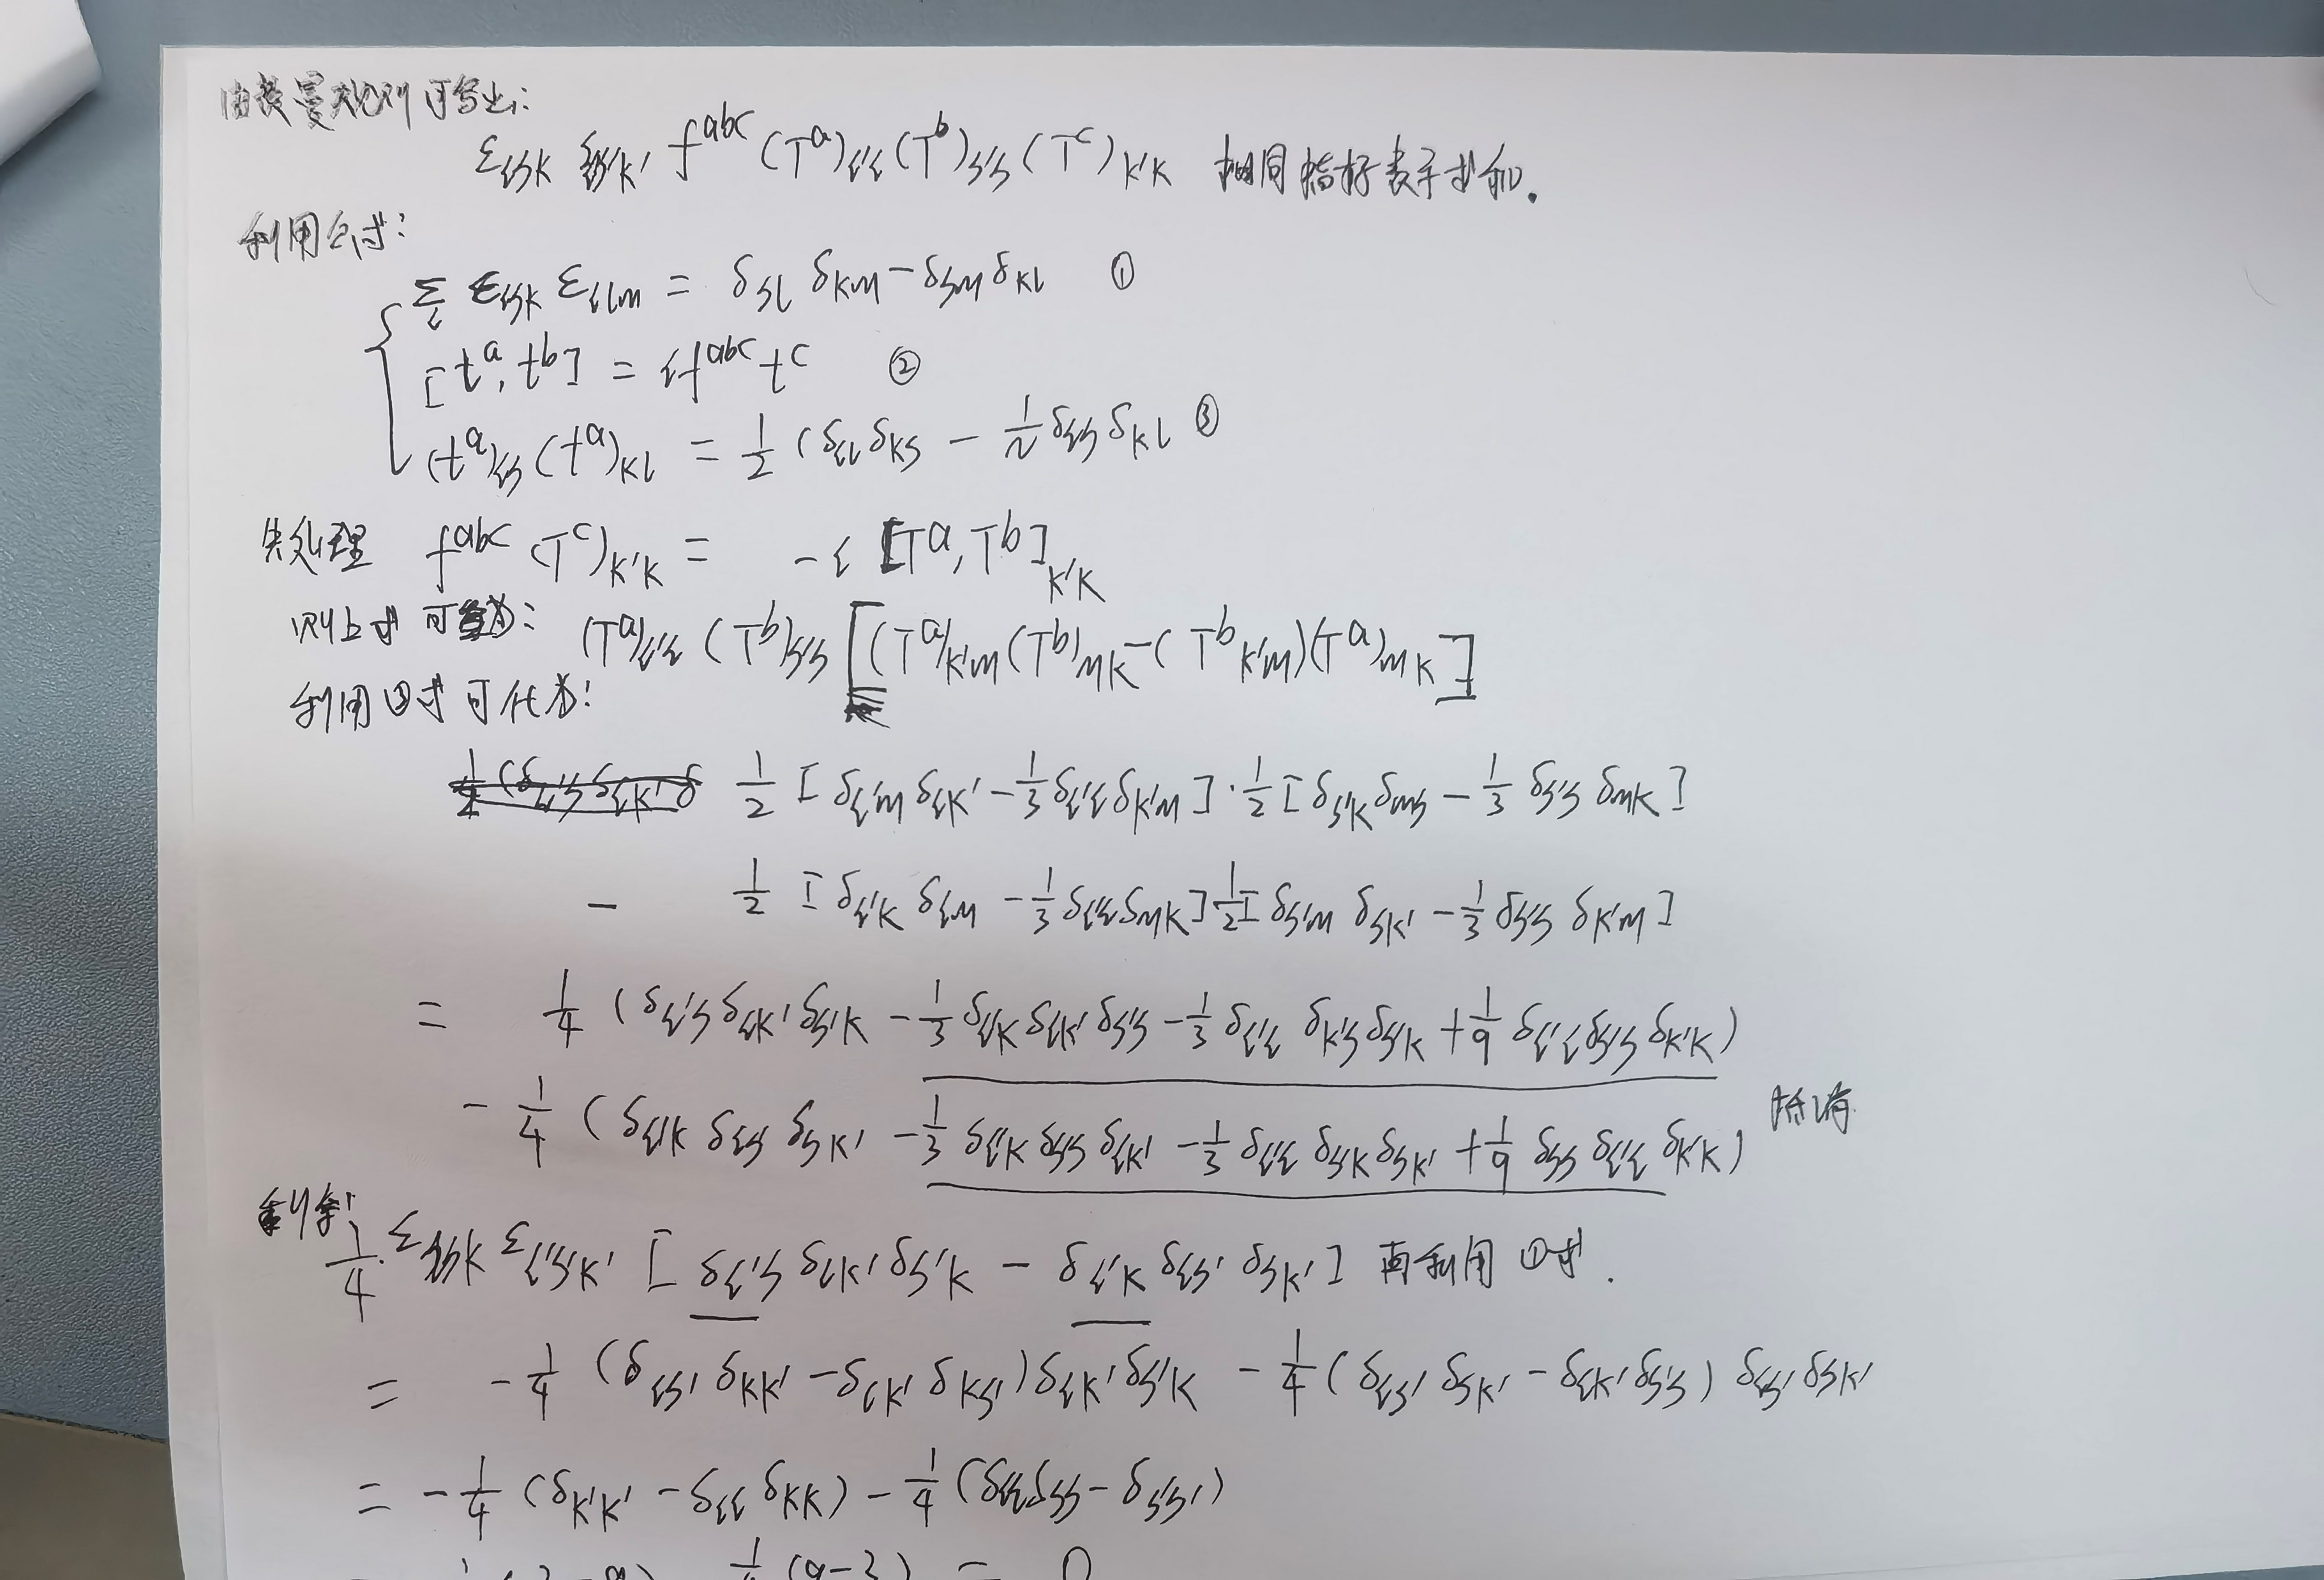 由费曼规则可写出:
ε_{ijk} ε_{i'j'k'} f^{abc} (T^a)_{i'i} (T^b)_{j'j} (T^c)_{k'k} 相同指标表示求和.
利用公式:
Σ_i ε_{ijk} ε_{ilm} = δ_{jl} δ_{km} - δ_{jm} δ_{kl} ①
[t^a, t^b] = i f^{abc} t^c ②
(t^a)_{ij} (t^a)_{kl} = 1/2 (δ_{il} δ_{kj} - 1/N δ_{ij} δ_{kl} ③
先处理 f^{abc} (T^c)_{k'k} = -i [T^a, T^b]_{k'k}
则上式可写为: (T^a)_{i'i} (T^b)_{j'j} [(T^a)_{k'm} (T^b)_{mk} - (T^b_{k'm}) (T^a)_{mk}]
利用③式可化为:
1/2 [δ_{i'm} δ_{ik'} - 1/3 δ_{i'i} δ_{k'm}] · 1/2 [δ_{j'k} δ_{mj} - 1/3 δ_{j'j} δ_{mk}]
- 1/2 [δ_{i'k} δ_{im} - 1/3 δ_{i'i} δ_{mk}] 1/2 [δ_{j'm} δ_{jk'} - 1/3 δ_{j'j} δ_{k'm}]
= 1/4 (δ_{i'j} δ_{ik'} δ_{j'k} - 1/3 δ_{i'k} δ_{ik'} δ_{j'j} - 1/3 δ_{i'i} δ_{k'j} δ_{j'k} + 1/9 δ_{i'i} δ_{j'j} δ_{k'k})
- 1/4 (δ_{i'k} δ_{ij'} δ_{jk'} - 1/3 δ_{i'k} δ_{j'j} δ_{ik'} - 1/3 δ_{i'i} δ_{j'k} δ_{jk'} + 1/9 δ_{j'j} δ_{i'i} δ_{k'k}) 抵消
剩余:
1/4 · ε_{ijk} ε_{i'j'k'} [δ_{i'j} δ_{ik'} δ_{j'k} - δ_{i'k} δ_{ij'} δ_{jk'}] 再利用①式.
= -1/4 (δ_{ij'} δ_{kk'} - δ_{ik'} δ_{kj'}) δ_{ik'} δ_{j'k} - 1/4 (δ_{ij'} δ_{jk'} - δ_{ik'} δ_{j'j}) δ_{ij'} δ_{jk'}
= -1/4 (δ_{k'k'} - δ_{ii} δ_{kk}) - 1/4 (δ_{ii} δ_{jj} - δ_{j'j'})
(3-9) 1/4 (9-3) = 0